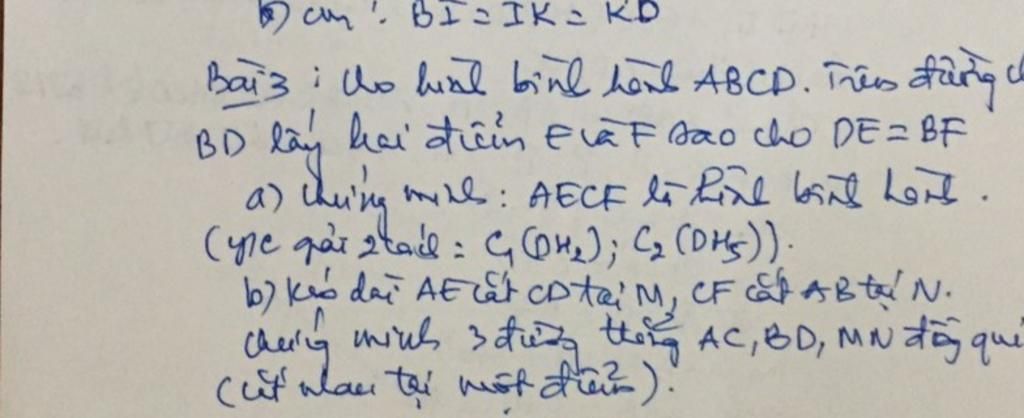 b) cm : BI = IK = KD
Bài 3 : Cho hình bình hành ABCD. Trên đường c
BD lấy hai điểm E và F sao cho DE = BF
a) Chứng minh : AECF là hình bình hành .
(y/c giải 2 cách : C₁ (DH₂) ; C₂ (DH₅)).
b) Kéo dài AE cắt CD tại M, CF cắt AB tại N.
Chứng minh 3 đường thẳng AC, BD, MN đồng qui
(cắt nhau tại một điểm).